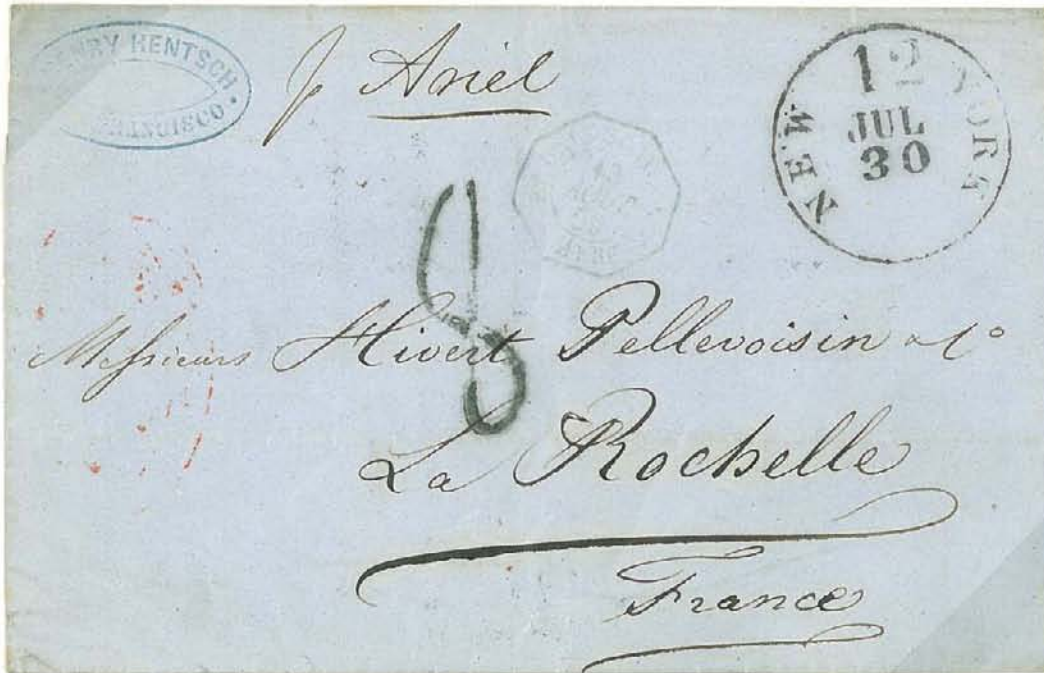 HENRY HENTSCH
FRANCISCO.
p Ariel
NEW YORK
12
JUL
30
8
Messieurs Hivert Pellevoisin & Co
La Rochelle
France